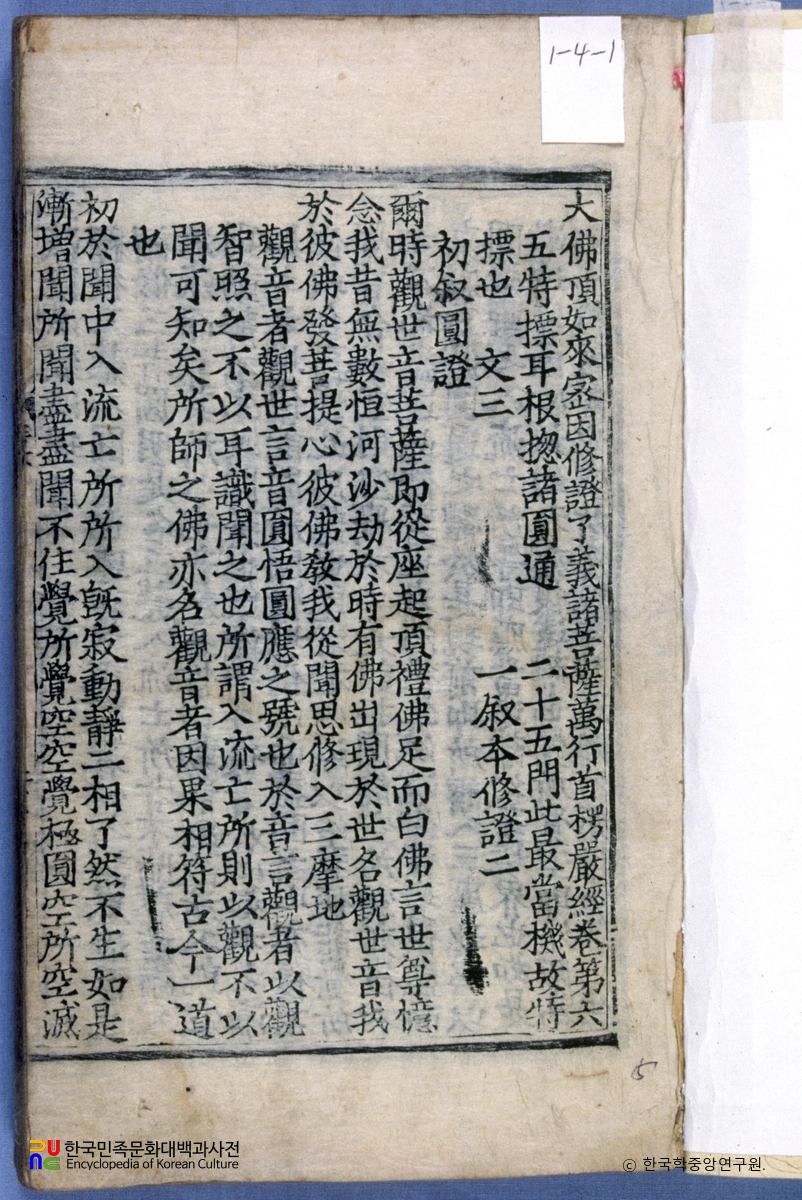 1-4-1
大佛頂如來密因修證了義諸菩薩萬行首楞嚴經卷第六
五特摽耳根揔諸圓通 二十五門此最當機故特
摽也 文三 一叙本修證二
初叙圓證
爾時觀世音菩薩即從座起頂禮佛足而白佛言世尊憶
念我昔無數恒河沙劫於時有佛出現於世名觀世音我
於彼佛發菩提心彼佛教我從聞思修入三摩地
觀音者觀世言音圓悟圓應之號也於音言觀者以觀
智照之不以耳識聞之也所謂入流亡所則以觀不以
聞可知矣所師之佛亦名觀音者因果相符古今一道
也
初於聞中入流亡所所入旣寂動靜二相了然不生如是
漸增聞所聞盡盡聞不住覺所覺空空覺極圓空所空滅
5
한국민족문화대백과사전
Encyclopedia of Korean Culture
ⓒ 한국학중앙연구원.